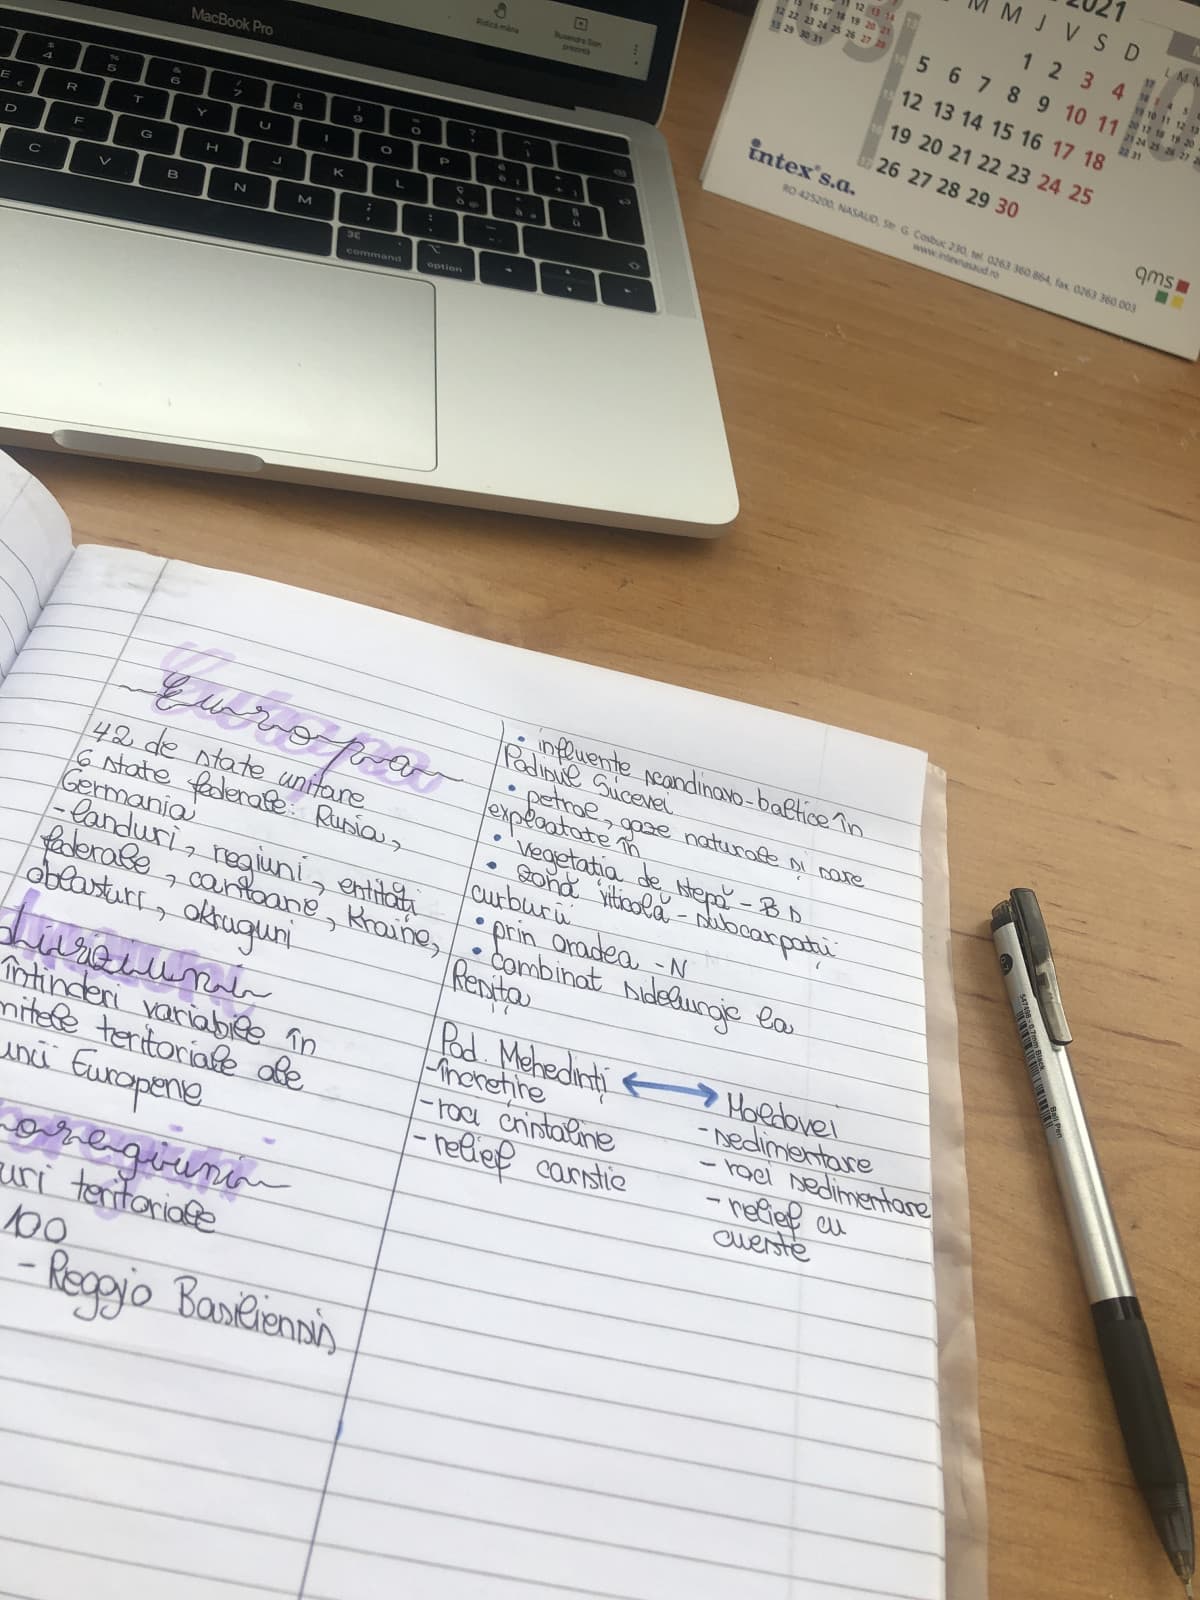 MacBook Pro
Ridică mâna
prezintă
command
option
2021
M M J V S D
1 2 3 4
5 6 7 8 9 10 11
12 13 14 15 16 17 18
19 20 21 22 23 24 25
26 27 28 29 30
intex s.a.
RO 425200, NASAUD, Str. G. Cosbuc 230, tel. 0263 360.864, fax. 0263 360.003
www.intexnasaud.ro
qms
Europa
42 de state unitare
6 state federale: Rusia,
Germania
- landuri, regiuni, entități
federale, cantoane, kraine,
oblasturi, okruguni
întinderi variabile în
teritoriale ale
Europene
teritoriale
100
- Reggio Basiliensis
• influente scandinavo-baltice în
Podișul Sucevei
• petrol, gaze naturale și sare
exploatate în
• vegetatia de stepă - BD
• zonă viticolă - subcarpații
curburii
• prin oradea - N
• combinat siderurgic la
Reșița
Pod. Mehedinți
- încrețire
- roci cristaline
- relief carstic
Moldovei
- sedimentare
- roci sedimentare
- relief cu
cueste
547498 - 0.7mm Black
Ball Pen